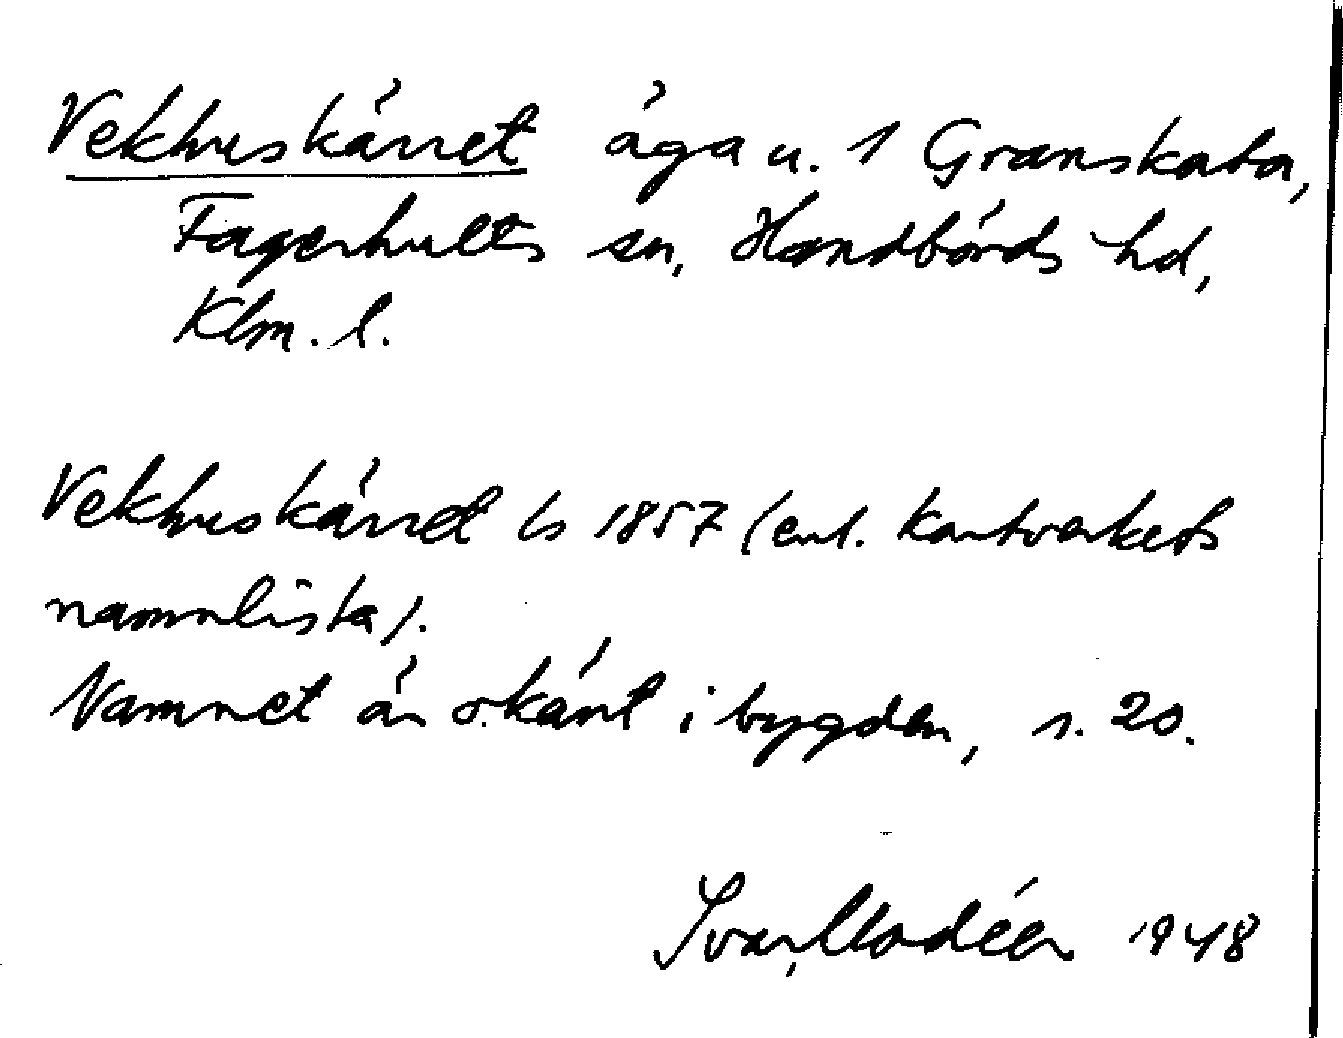 Vekhuskärret äga u. 1 Granskata,
Fagerhults sn, Handbörds hd,
Klm. l.
Vekhuskärret ls 1857 (enl. Kartverkets
namnlista).
Namnet är okänt i bygden, s. 20.
Ivar Modéer 1948